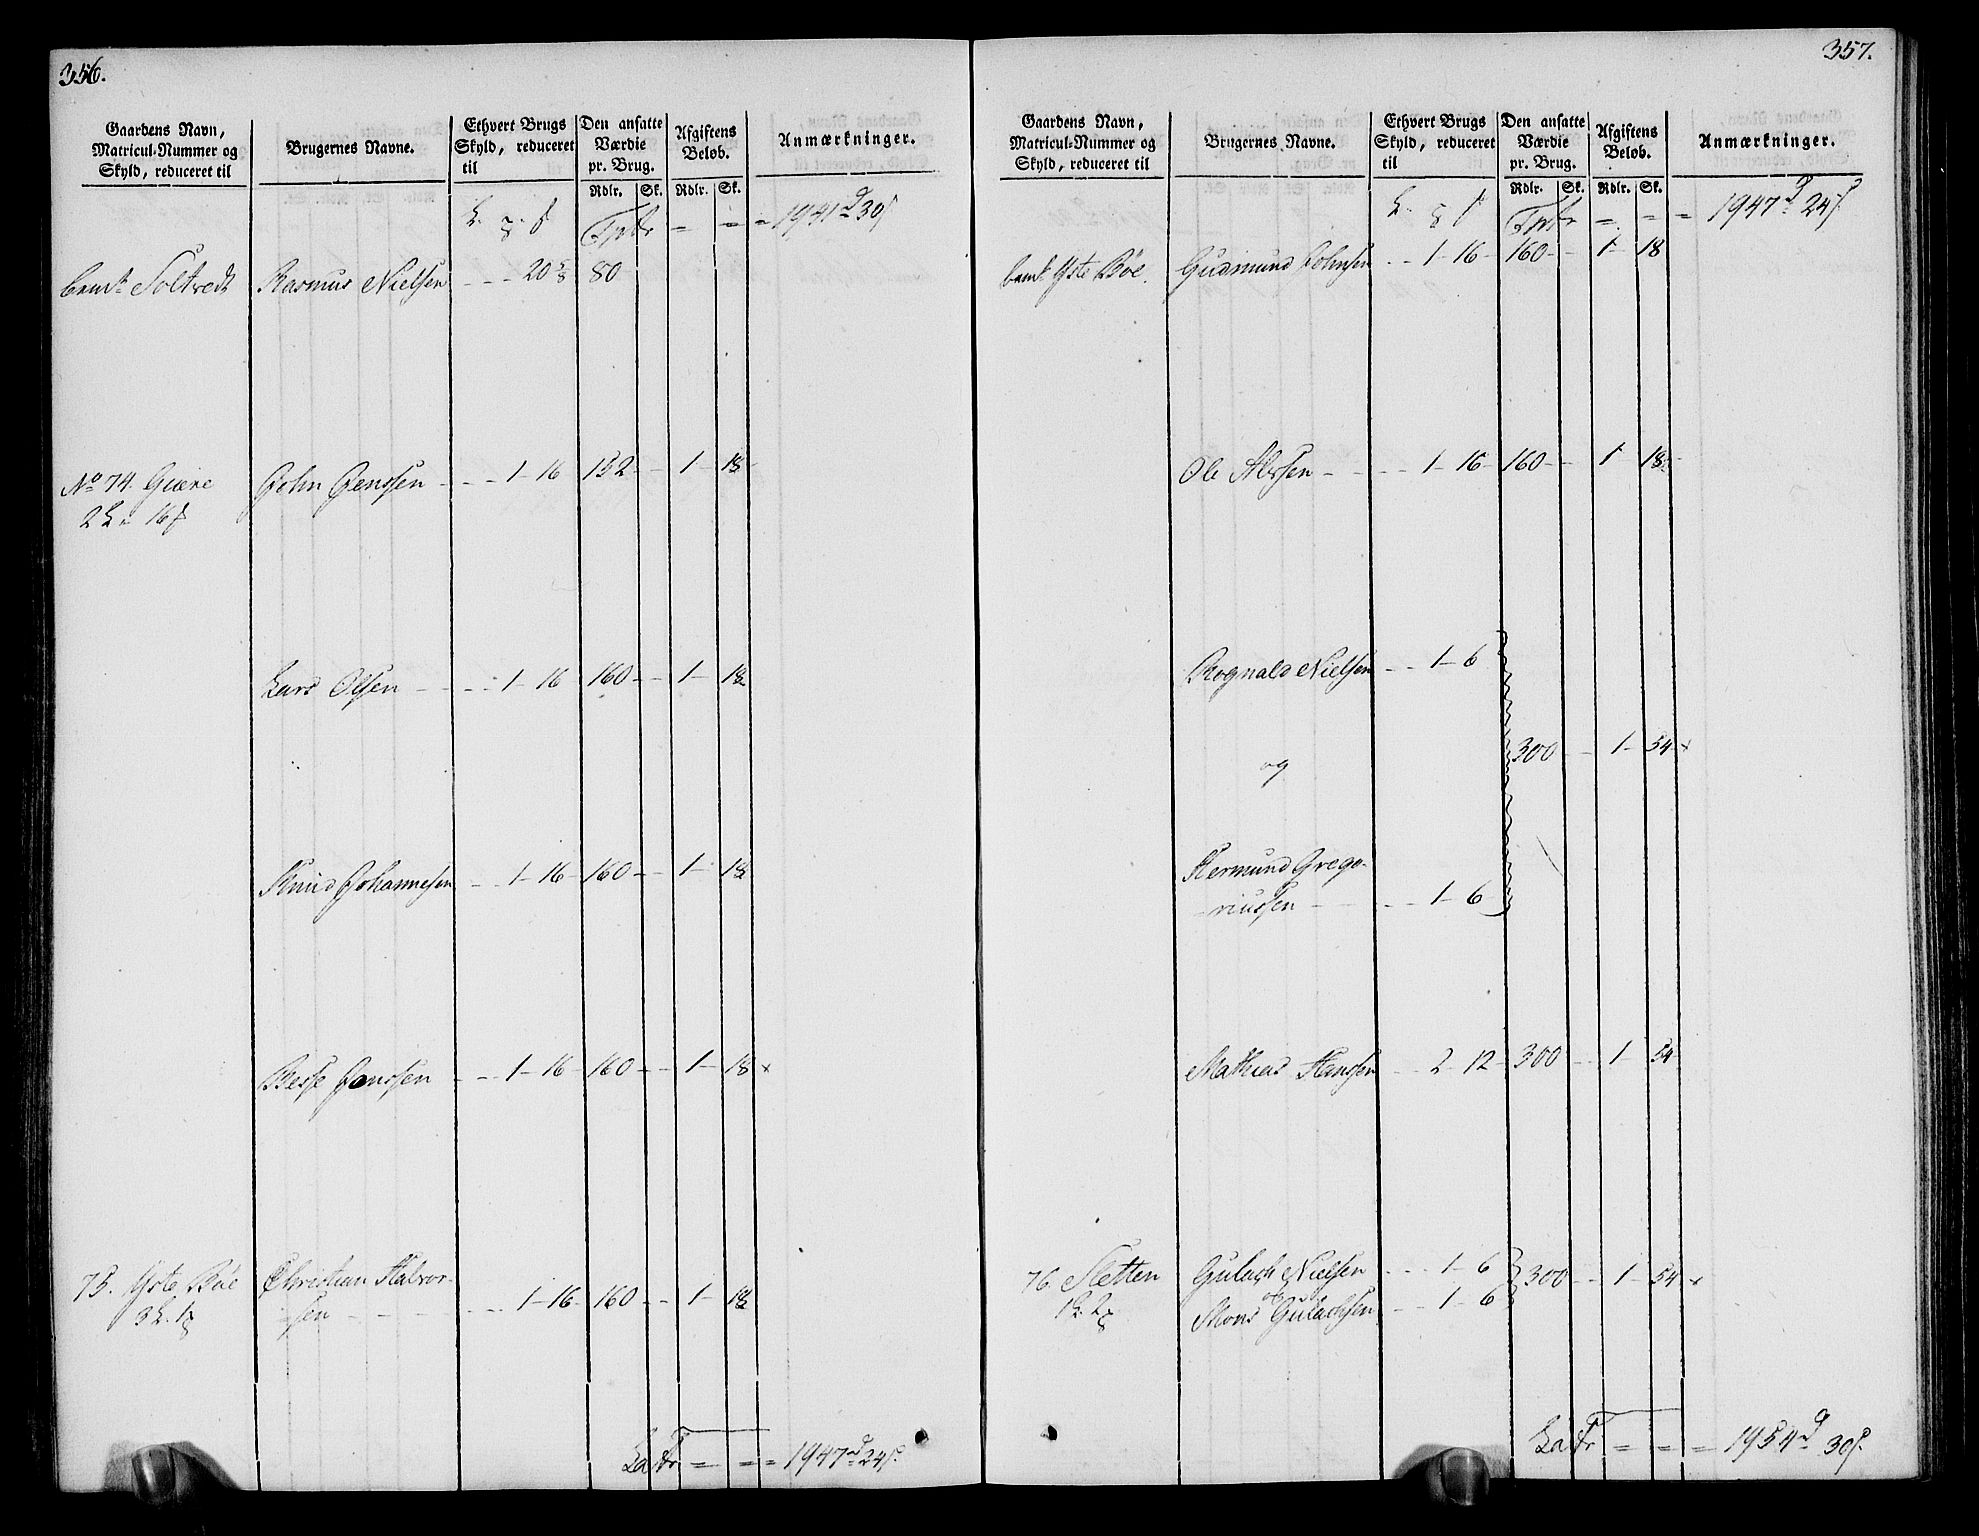 356.
Gaardens Navn,
Matricul-Nummer og
Skyld, reduceret til
Brugernes Navne.
Ethvert Brugs
Skyld, reduceret
til
Den ansatte
Værdie
pr. Brug.
Rdlr. Sk.
Afgiftens
Beløb.
Rdlr. Sk.
Anmærkninger.
Tr = = = 1941 30
Rasmus Nielsen - - - 20 80
No 74. Giere John Jenssen - - - 1 - 16 152 - - 1 - 18
Lars Olsen - - - 1 - 16 160 - - 1 - 18
Knud Johannesen - - 1 - 16 160 - - 1 - 18
Besse Jonssen - - - 1 - 16 160 - - 1 - 18
75. Yste Bøe Christian Halvor-
sen - - - 1 - 16 160 - - 1 - 18
= = = 1947 24
357.
Gaardens Navn,
Matricul-Nummer og
Skyld, reduceret til
Brugernes Navne.
Ethvert Brugs
Skyld, reduceret
til
Den ansatte
Værdie
pr. Brug.
Rdlr. Sk.
Afgiftens
Beløb.
Rdlr. Sk.
Anmærkninger.
= = = 1947 24
Yste Bøe. Gudmund Johnsen - - 1 - 16 160 - - 1 - 18
Ole - - - 1 - 16 160 - - 1 - 18
Rognald Nielsen - - 1 - 6
og 300 - - 1 - 54
Hermund Grego-
riussen - - - 1 - 6
Mathias Hanssen - - 2 - 12 300 - - 1 - 54
76. Sletten Gulach Nielsen - - - 1 - 6 300 - - 1 - 54
og
Mons Gulachsen - - 1 - 6
= = = 1954 30